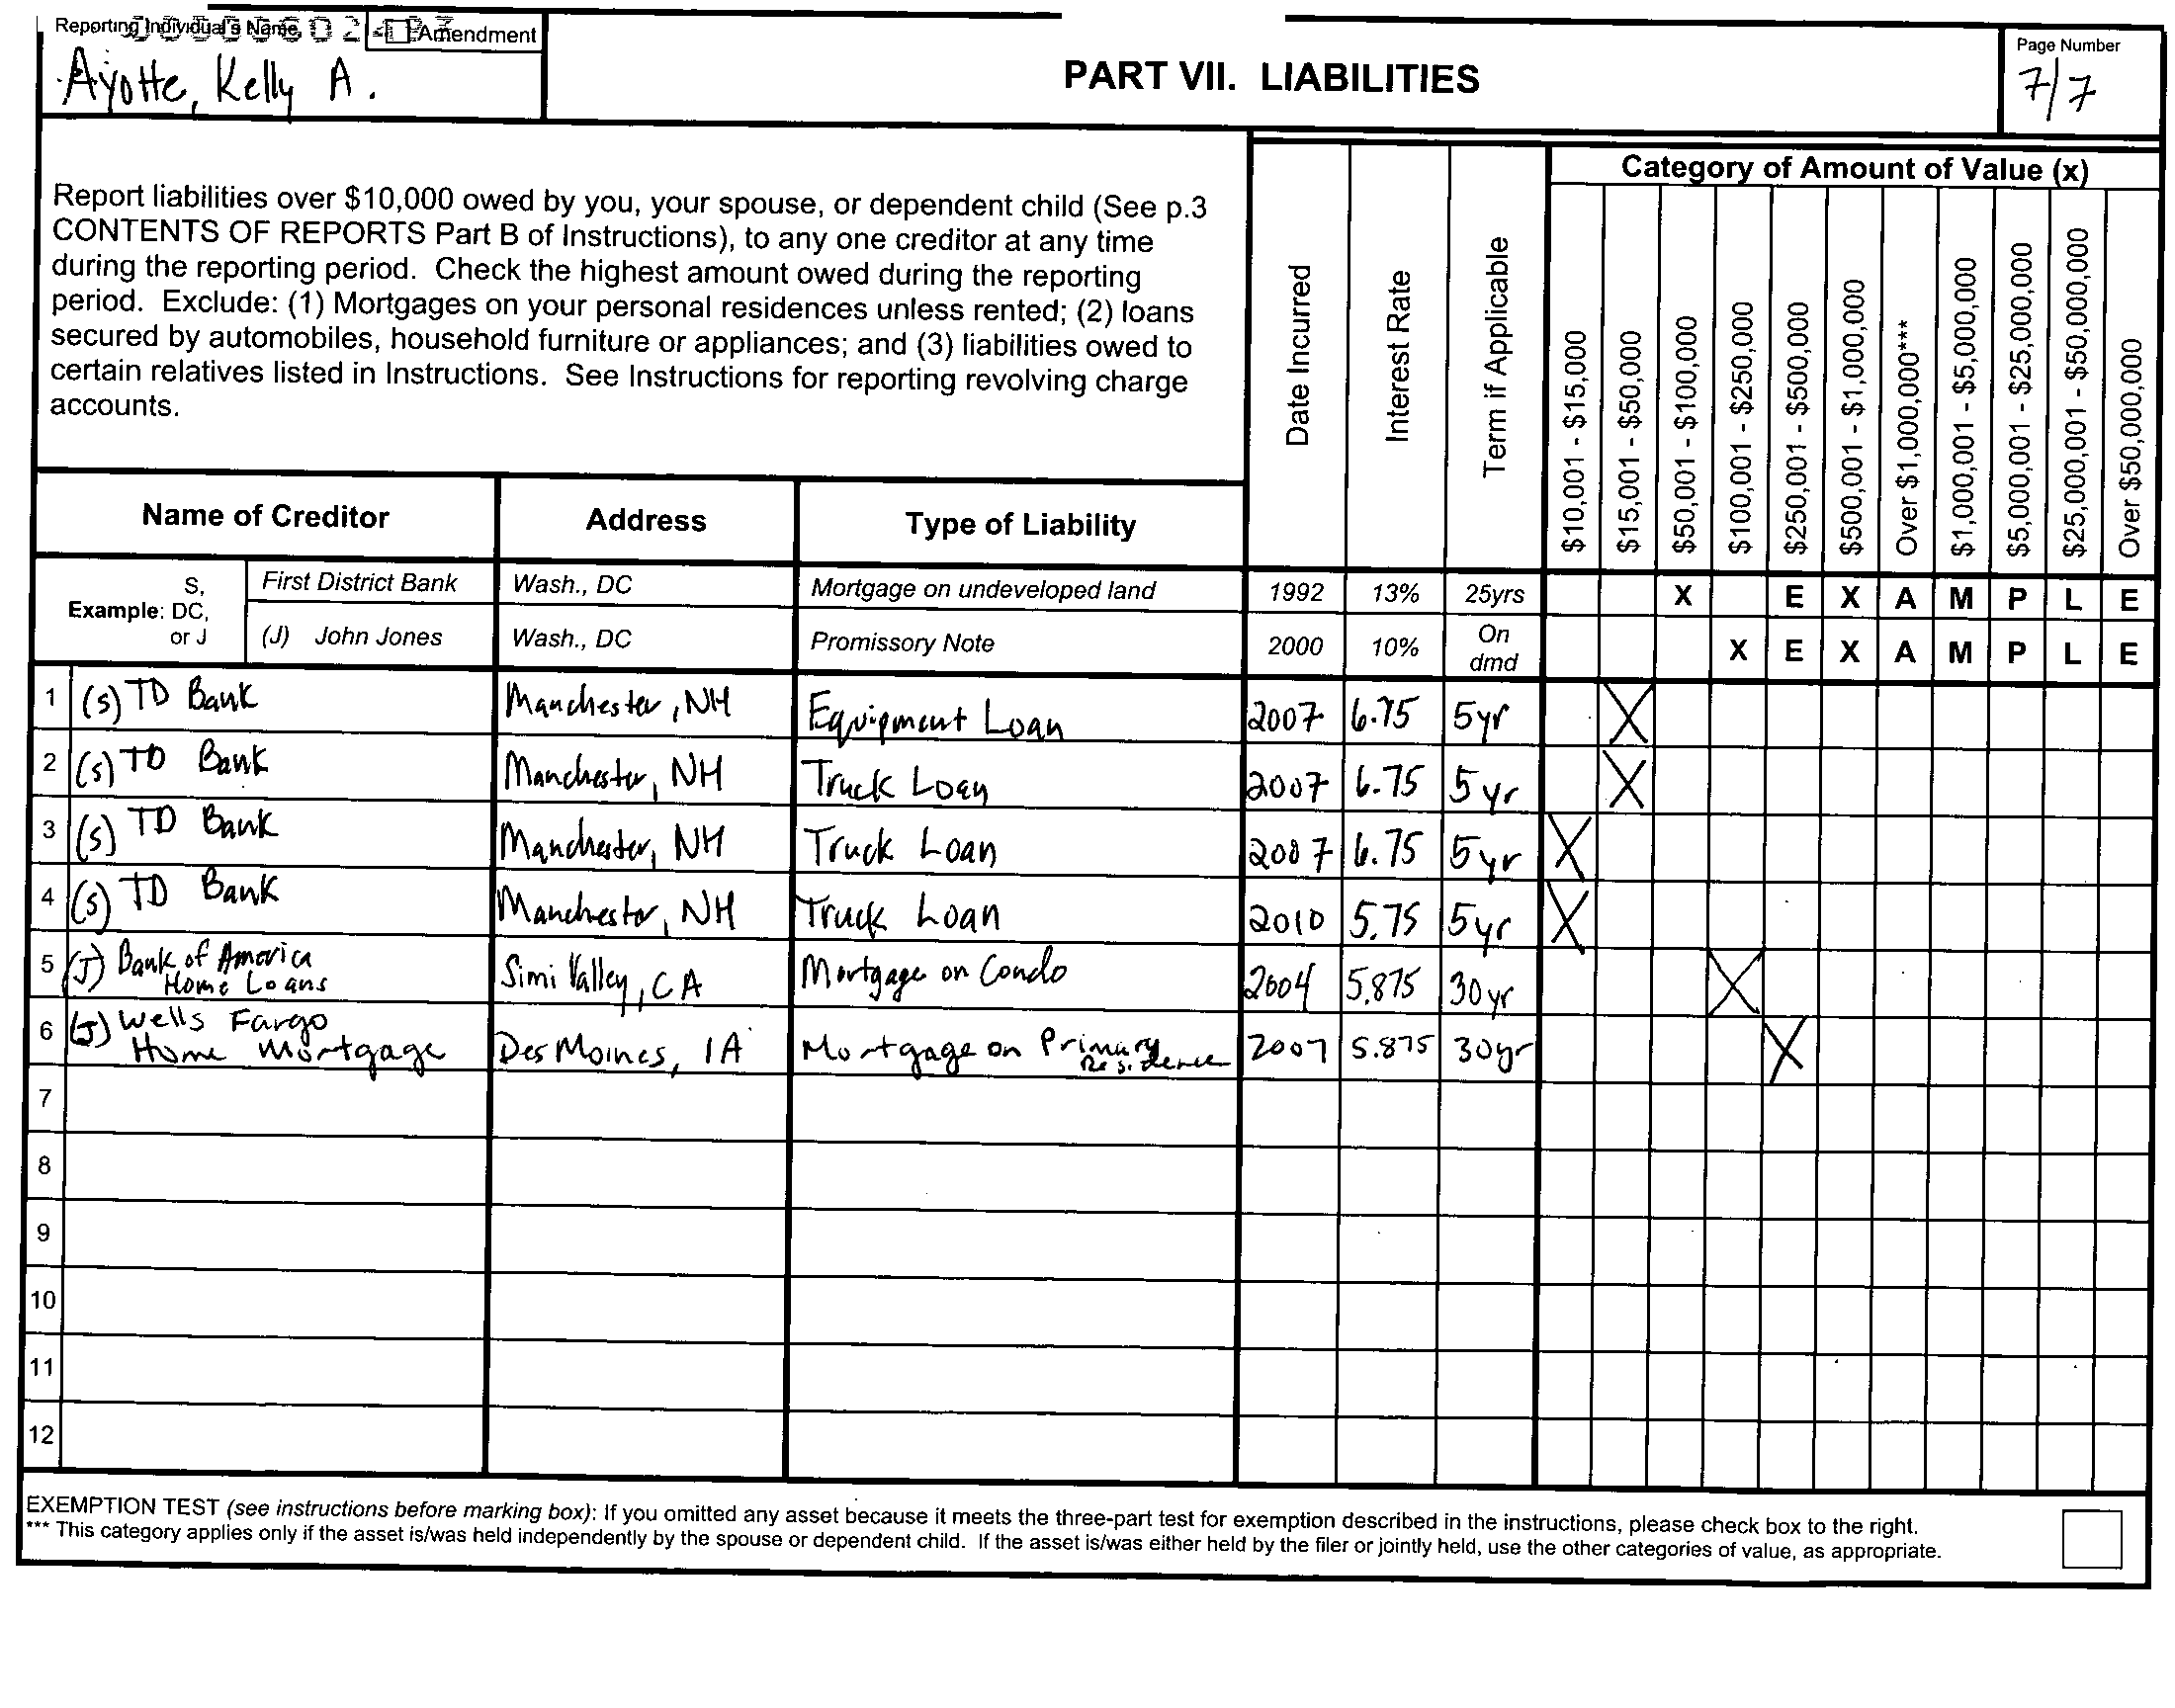 Reporting Individual's Name
Amendment
Ayotte, Kelly A.
PART VII. LIABILITIES
Page Number
7/7
Report liabilities over $10,000 owed by you, your spouse, or dependent child (See p.3
CONTENTS OF REPORTS Part B of Instructions), to any one creditor at any time
during the reporting period. Check the highest amount owed during the reporting
period. Exclude: (1) Mortgages on your personal residences unless rented; (2) loans
secured by automobiles, household furniture or appliances; and (3) liabilities owed to
certain relatives listed in Instructions. See Instructions for reporting revolving charge
accounts.
Date Incurred
Interest Rate
Term if Applicable
Category of Amount of Value (x)
$10,001 - $15,000
$15,001 - $50,000
$50,001 - $100,000
$100,001 - $250,000
$250,001 - $500,000
$500,001 - $1,000,000
Over $1,000,000***
$1,000,001 - $5,000,000
$5,000,001 - $25,000,000
$25,000,001 - $50,000,000
Over $50,000,000
Name of Creditor Address Type of Liability
Example: S, DC, or J
First District Bank Wash., DC Mortgage on undeveloped land 1992 13% 25yrs X E X A M P L E
(J) John Jones Wash., DC Promissory Note 2000 10% On dmd X E X A M P L E
1 (S) TD Bank Manchester, NH Equipment Loan 2007 6.75 5yr X
2 (S) TD Bank Manchester, NH Truck Loan 2007 6.75 5yr X
3 (S) TD Bank Manchester, NH Truck Loan 2007 6.75 5yr X
4 (S) TD Bank Manchester, NH Truck Loan 2010 5.75 5yr X
5 (J) Bank of America Home Loans Simi Valley, CA Mortgage on Condo 2004 5.875 30yr X
6 (J) Wells Fargo Home Mortgage Des Moines, IA Mortgage on Primary Residence 2007 5.875 30yr X
7
8
9
10
11
12
EXEMPTION TEST (see instructions before marking box): If you omitted any asset because it meets the three-part test for exemption described in the instructions, please check box to the right.
*** This category applies only if the asset is/was held independently by the spouse or dependent child. If the asset is/was either held by the filer or jointly held, use the other categories of value, as appropriate.